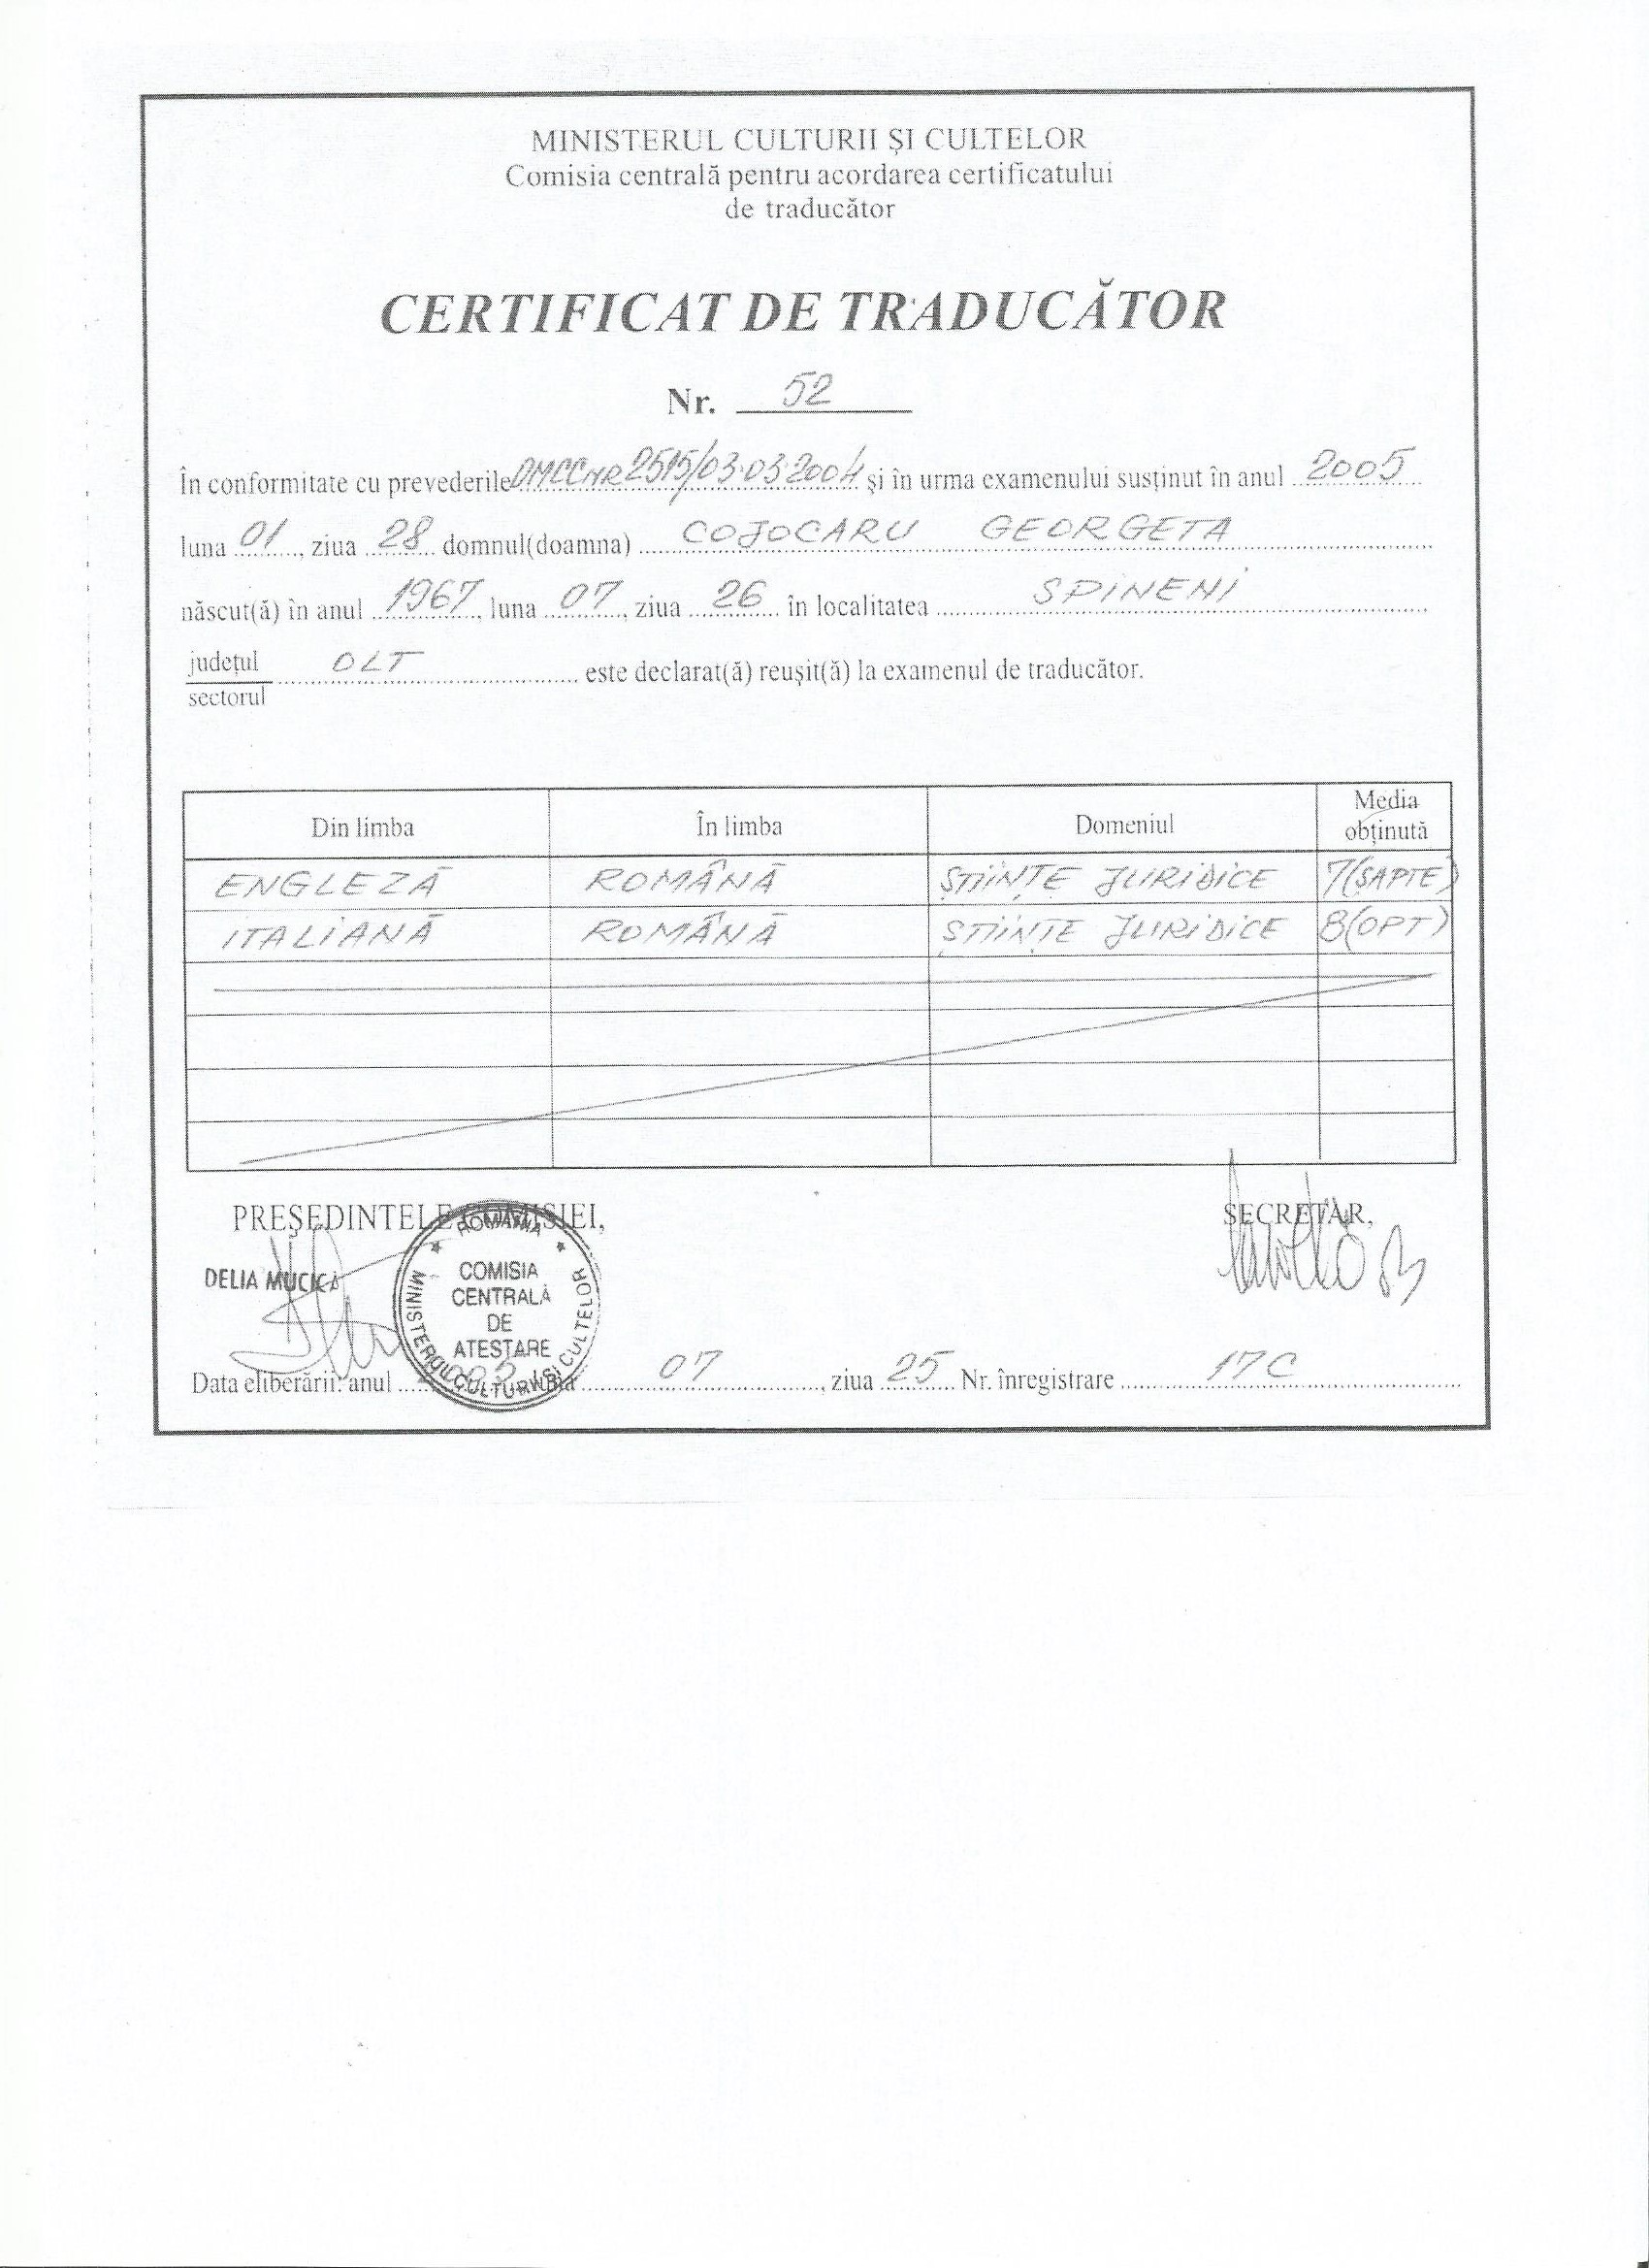 MINISTERUL CULTURII ŞI CULTELOR
Comisia centrală pentru acordarea certificatului
de traducător
CERTIFICAT DE TRADUCĂTOR
Nr. 52
În conformitate cu prevederile DMCC NR 2515/03.03.2004 şi în urma examenului susţinut în anul 2005
luna 01, ziua 28 domnul(doamna) COJOCARU GEORGETA
născut(ă) în anul 1967, luna 07, ziua 26 în localitatea SPINENI
judeţul
sectorul OLT este declarat(ă) reuşit(ă) la examenul de traducător.
Din limba În limba Domeniul Media obţinută
ENGLEZĂ ROMÂNĂ ŞTIINŢE JURIDICE 7(ŞAPTE)
ITALIANĂ ROMÂNĂ ŞTIINŢE JURIDICE 8(OPT)
PREŞEDINTELE COMISIEI, SECRETAR,
DELIA MUCICĂ
ROMÂNIA
MINISTERUL CULTURII ŞI CULTELOR
COMISIA
CENTRALĂ
DE
ATESTARE
Data eliberării: anul luna 07, ziua 25 Nr. înregistrare 17C